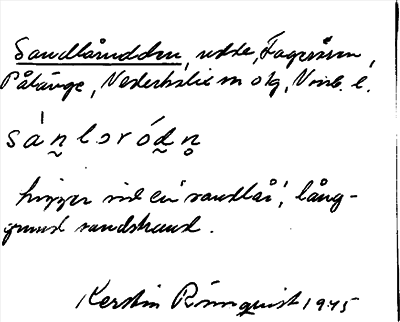 Sandlåudden, udde, Fageråsen,
Pålänge, Nederkalix sn o kg, Norrb. l.
sàn̰lɔrón̥
ligger vid en 'sandlå', lång-
grund sandstrand.
Kerstin Rönnquist 1945